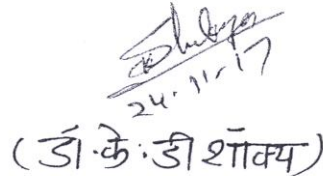 24.11.17
(डॉ.के.डी शॉक्य)